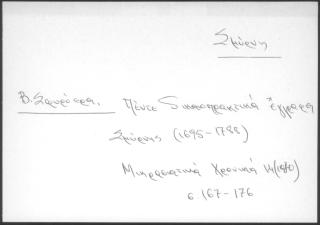 Σμύρνη
Β. Σφυρόερα, Πέντε δικαιοπρακτικά ἔγγραφα
Σμύρνης (1695-1786)
Μικρασιατικά Χρονικά 14 (1970)
σ. 167-176